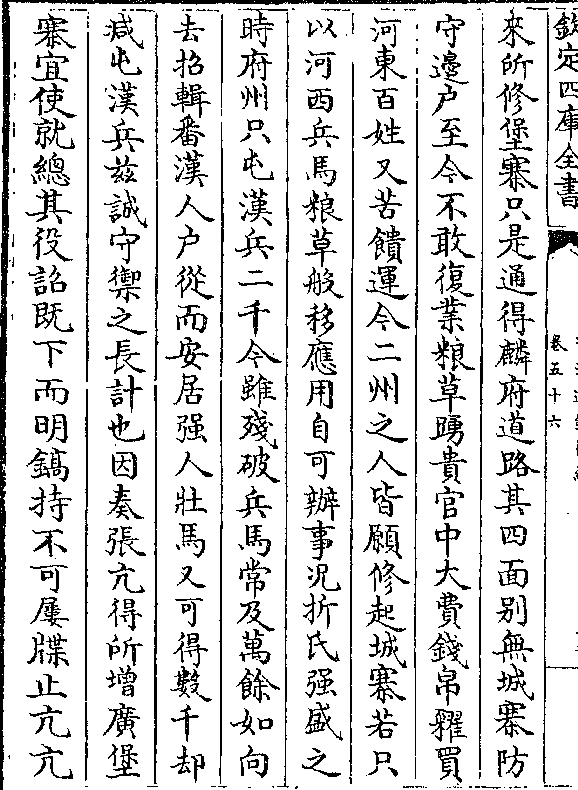 欽定四庫全書
卷五十六
來所修堡寨只是通得麟府道路其四面别無城寨防
守邉户至今不敢復業粮草踴貴官中大費錢帛糴買
河東百姓又苦饋運今二州之人皆願修起城寨若只
以河西兵馬粮草般移應用自可辦事况折氏强盛之
時府州只屯漢兵二千今雖殘破兵馬常及萬餘如向
去招輯番漢人户從而安居强人壯馬又可得數千却
减屯漢兵兹誠守禦之長計也因奏張亢得所增廣堡
寨宜使就總其役詔既下而明鎬持不可屢牒止亢亢